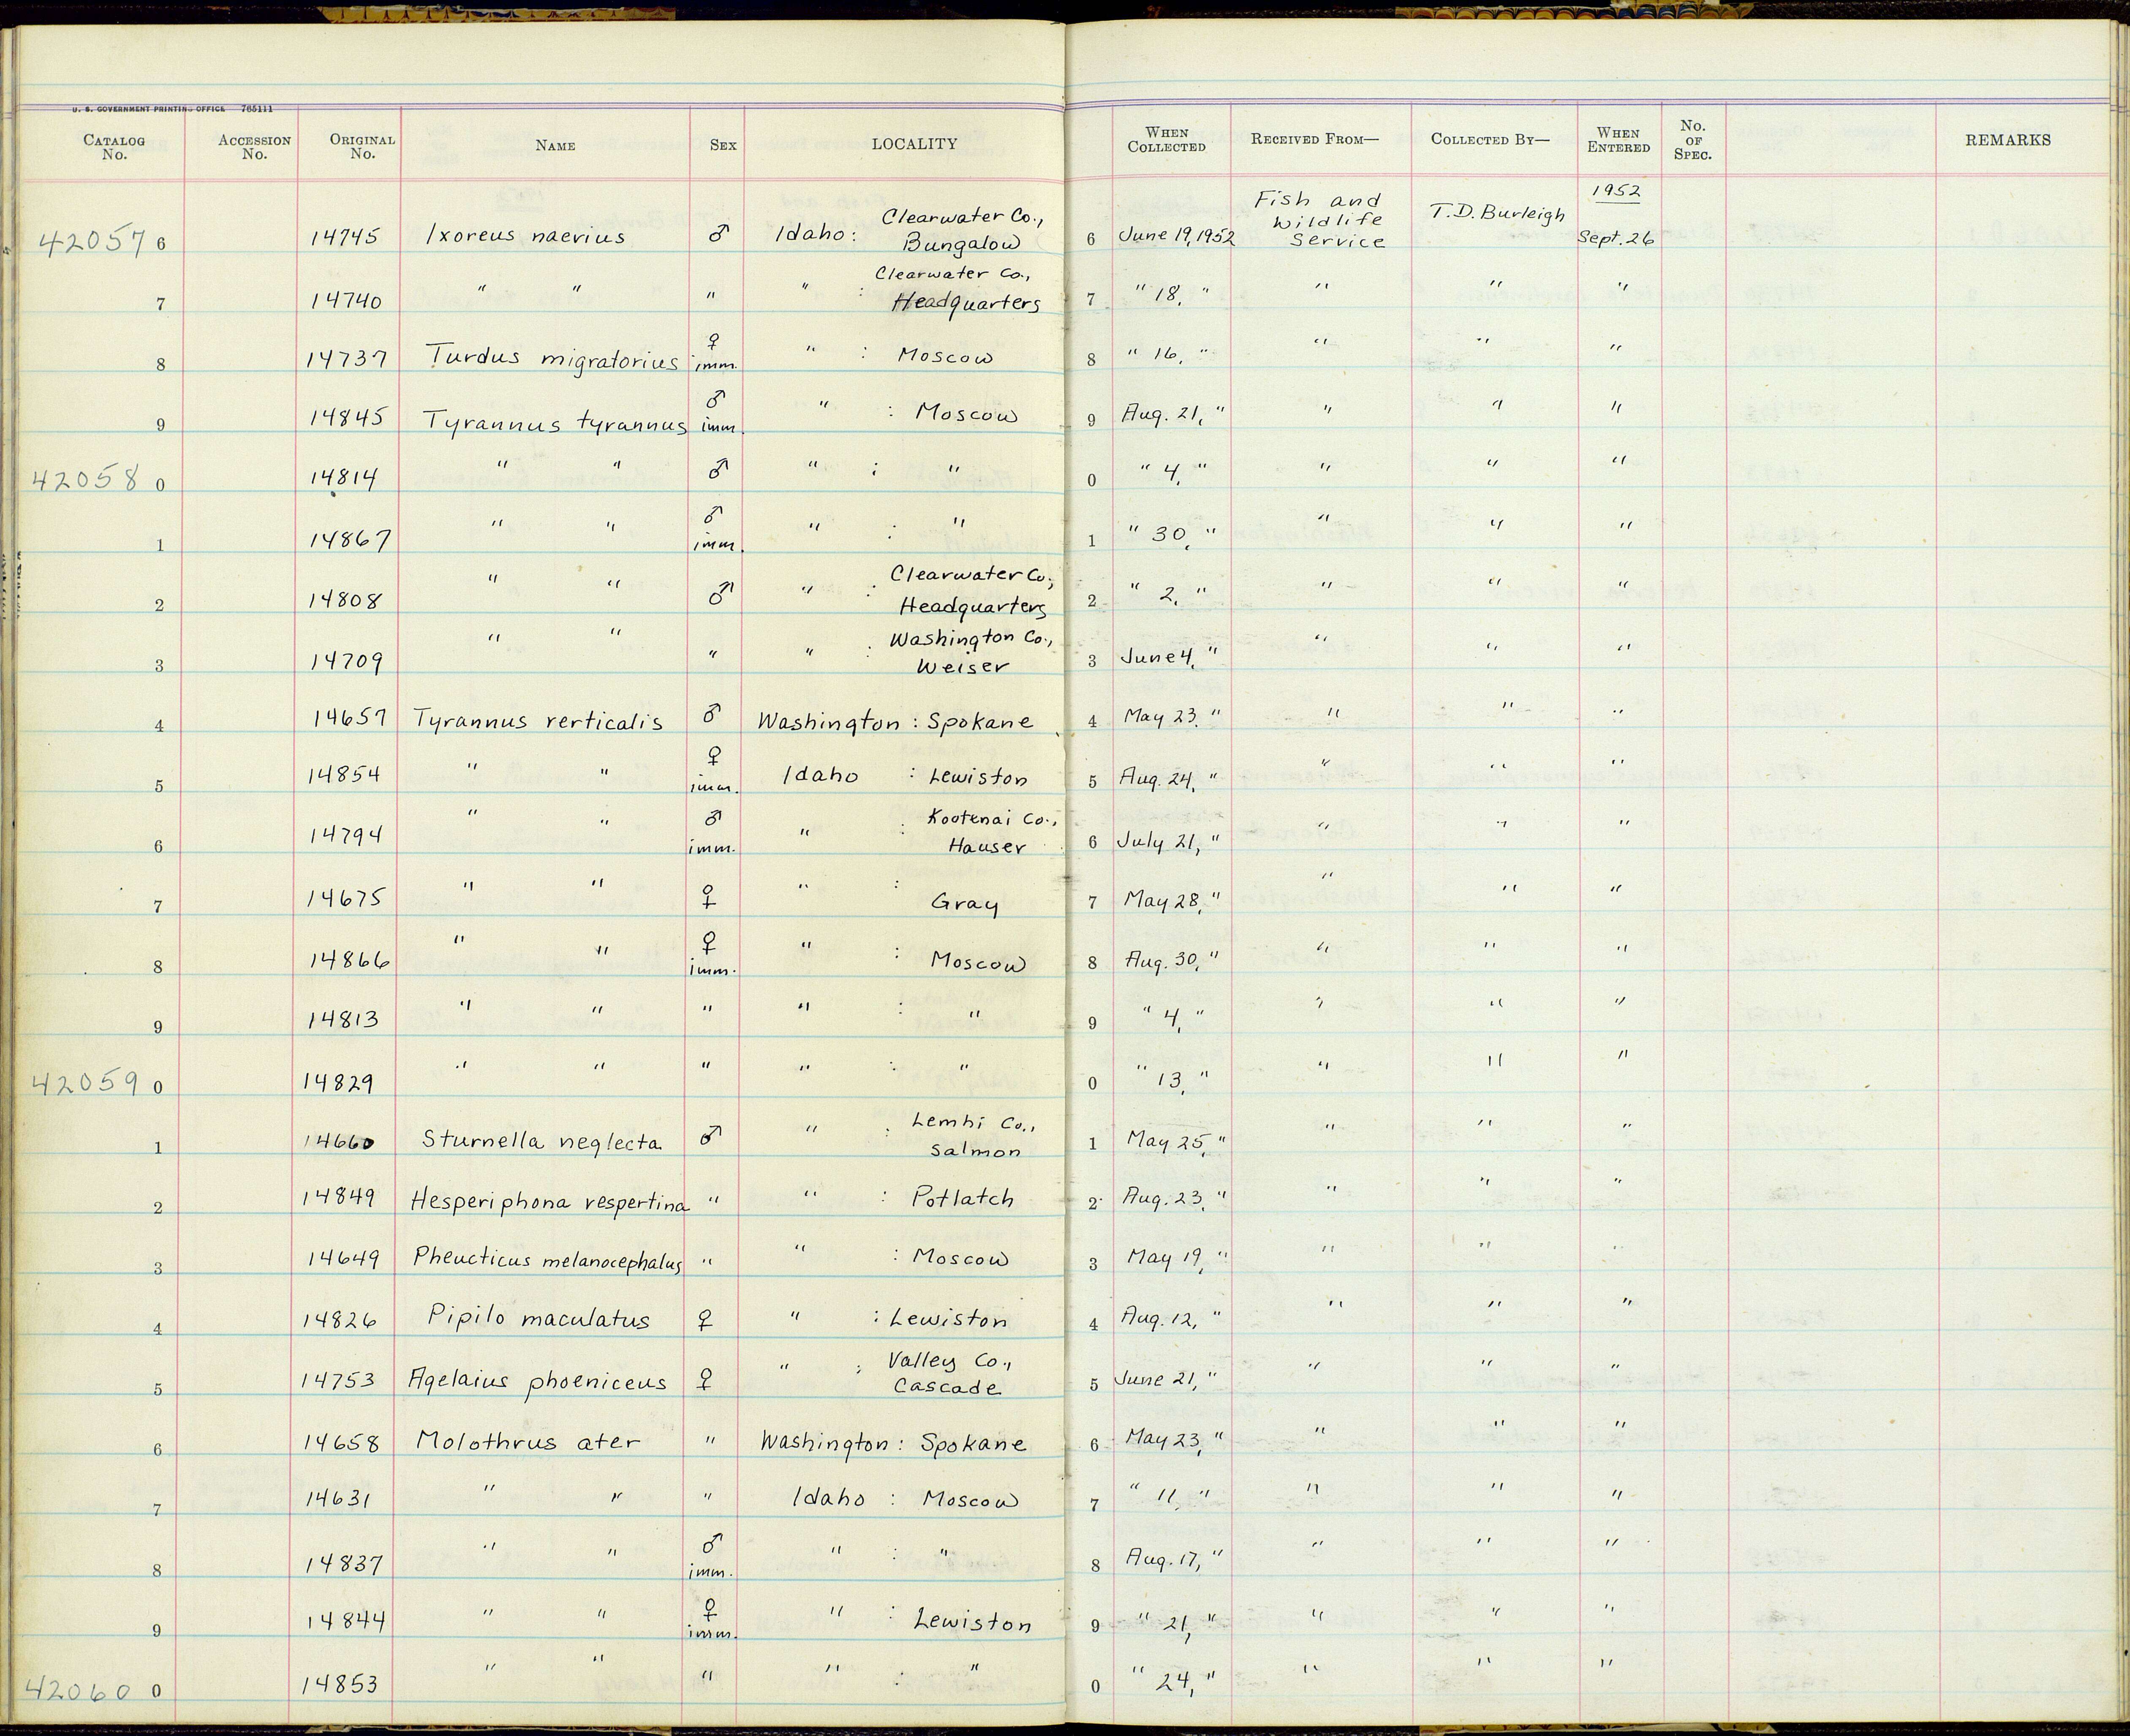 U. S. GOVERNMENT PRINTING OFFICE 765111
CATALOG No. ACCESSION No. ORIGINAL No. NAME SEX LOCALITY WHEN COLLECTED RECEIVED FROM— COLLECTED BY— WHEN ENTERED No. OF SPEC. REMARKS
42057 6 14745 Ixoreus naevius ♂ Idaho: Clearwater Co., Bungalow 6 June 19, 1952 Fish and Wildlife Service T.D. Burleigh 1952 Sept. 26
7 14740 " " " " : Clearwater Co., Headquarters 7 " 18, " " " "
8 14737 Turdus migratorius ♀ imm. " : Moscow 8 " 16, " " " "
9 14845 Tyrannus tyrannus ♂ imm. " : Moscow 9 Aug. 21, " " " "
42058 0 14814 " " ♂ " : " 0 " 4, " " " "
1 14867 " " ♂ imm. " : " 1 " 30, " " " "
2 14808 " " ♂ " : Clearwater Co., Headquarters 2 " 2, " " " "
3 14709 " " " " : Washington Co., Weiser 3 June 4, " " " "
4 14657 Tyrannus verticalis ♂ Washington : Spokane 4 May 23, " " " "
5 14854 " " ♀ imm. Idaho : Lewiston 5 Aug. 24, " " " "
6 14794 " " ♂ imm. " : Kootenai Co., Hauser 6 July 21, " " " "
7 14675 " " ♀ " : Gray 7 May 28, " " " "
8 14866 " " ♀ imm. " : Moscow 8 Aug. 30, " " " "
9 14813 " " " " : " 9 " 4, " " " "
42059 0 14829 " " " " : " 0 " 13, " " " "
1 14660 Sturnella neglecta ♂ " : Lemhi Co., Salmon 1 May 25, " " " "
2 14849 Hesperiphona vespertina " " : Potlatch 2 Aug. 23, " " " "
3 14649 Pheucticus melanocephalus " " : Moscow 3 May 19, " " " "
4 14826 Pipilo maculatus ♀ " : Lewiston 4 Aug. 12, " " " "
5 14753 Agelaius phoeniceus ♀ " : Valley Co., Cascade 5 June 21, " " " "
6 14658 Molothrus ater " Washington : Spokane 6 May 23, " " " "
7 14631 " " " Idaho : Moscow 7 " 11, " " " "
8 14837 " " ♂ imm. " : " 8 Aug. 17, " " " "
9 14844 " " ♀ imm. " : Lewiston 9 " 21, " " " "
42060 0 14853 " " " " : " 0 " 24, " " " "